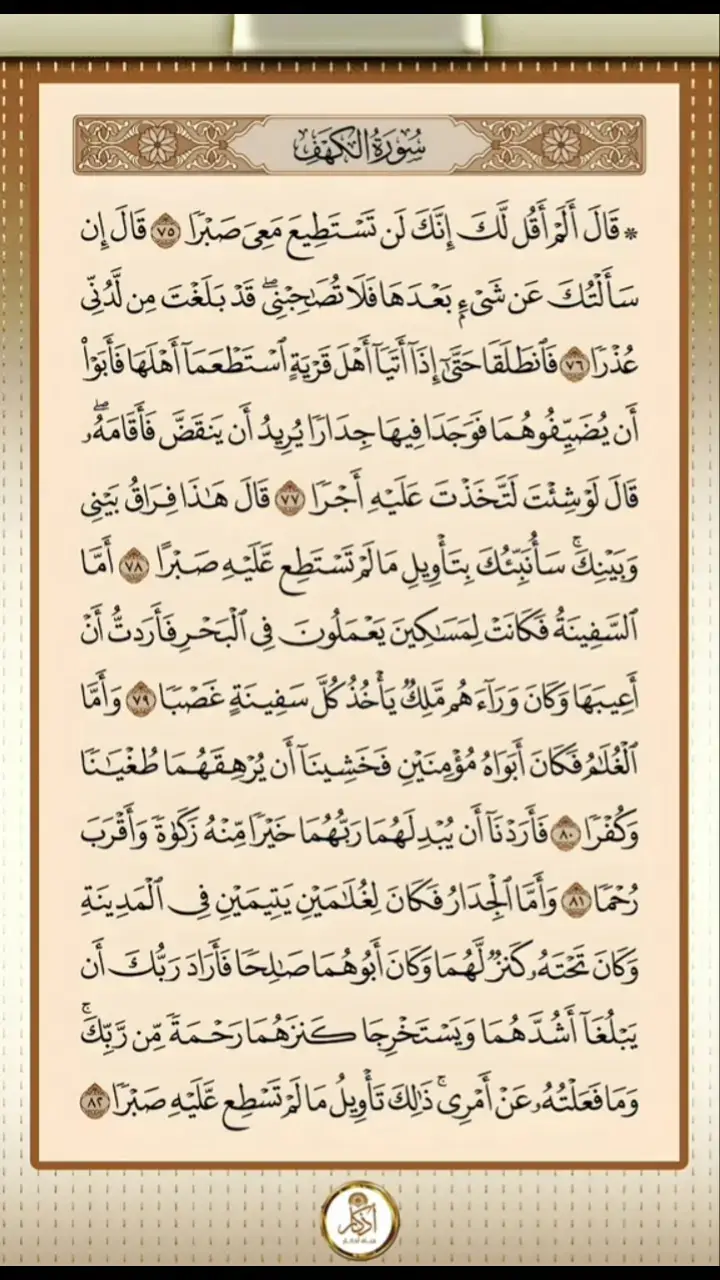 سُورَةُ الكَهۡفِ
۞ قَالَ أَلَمۡ أَقُل لَّكَ إِنَّكَ لَن تَسۡتَطِيعَ مَعِيَ صَبۡرٗا ٧٥ قَالَ إِن
سَأَلۡتُكَ عَن شَيۡءِۭ بَعۡدَهَا فَلَا تُصَٰحِبۡنِيۖ قَدۡ بَلَغۡتَ مِن لَّدُنِّي
عُذۡرٗا ٧٦ فَٱنطَلَقَا حَتَّىٰٓ إِذَآ أَتَيَآ أَهۡلَ قَرۡيَةٍ ٱسۡتَطۡعَمَآ أَهۡلَهَا فَأَبَوۡاْ
أَن يُضَيِّفُوهُمَا فَوَجَدَا فِيهَا جِدَارٗا يُرِيدُ أَن يَنقَضَّ فَأَقَامَهُۥۖ
قَالَ لَوۡ شِئۡتَ لَتَّخَذۡتَ عَلَيۡهِ أَجۡرٗا ٧٧ قَالَ هَٰذَا فِرَاقُ بَيۡنِي
وَبَيۡنِكَۚ سَأُنَبِّئُكَ بِتَأۡوِيلِ مَا لَمۡ تَسۡتَطِع عَّلَيۡهِ صَبۡرًا ٧٨ أَمَّا
ٱلسَّفِينَةُ فَكَانَتۡ لِمَسَٰكِينَ يَعۡمَلُونَ فِي ٱلۡبَحۡرِ فَأَرَدتُّ أَنۡ
أَعِيبَهَا وَكَانَ وَرَآءَهُم مَّلِكٞ يَأۡخُذُ كُلَّ سَفِينَةٍ غَصۡبٗا ٧٩ وَأَمَّا
ٱلۡغُلَٰمُ فَكَانَ أَبَوَاهُ مُؤۡمِنَيۡنِ فَخَشِينَآ أَن يُرۡهِقَهُمَا طُغۡيَٰنٗا
وَكُفۡرٗا ٨٠ فَأَرَدۡنَآ أَن يُبۡدِلَهُمَا رَبُّهُمَا خَيۡرٗا مِّنۡهُ زَكَوٰةٗ وَأَقۡرَبَ
رُحۡمٗا ٨١ وَأَمَّا ٱلۡجِدَارُ فَكَانَ لِغُلَٰمَيۡنِ يَتِيمَيۡنِ فِي ٱلۡمَدِينَةِ
وَكَانَ تَحۡتَهُۥ كَنزٞ لَّهُمَا وَكَانَ أَبُوهُمَا صَٰلِحٗا فَأَرَادَ رَبُّكَ أَن
يَبۡلُغَآ أَشُدَّهُمَا وَيَسۡتَخۡرِجَا كَنزَهُمَا رَحۡمَةٗ مِّن رَّبِّكَۚ
وَمَا فَعَلۡتُهُۥ عَنۡ أَمۡرِيۚ ذَٰلِكَ تَأۡوِيلُ مَا لَمۡ تَسۡطِع عَّلَيۡهِ صَبۡرٗا ٨٢
أذكار